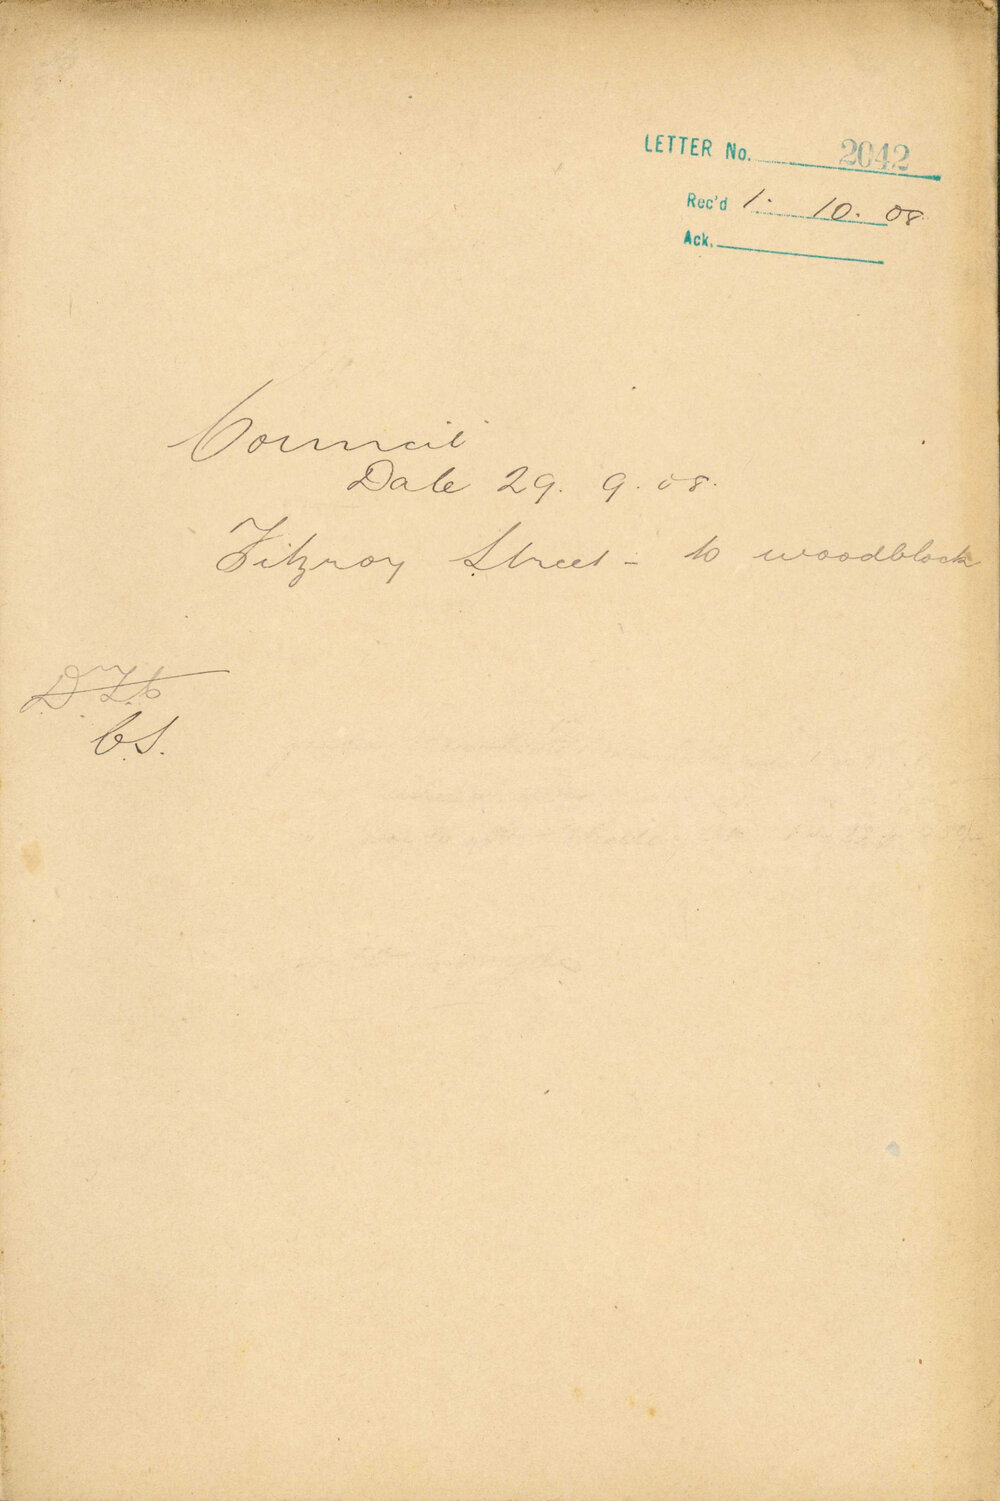 LETTER No. 2042
Rec'd 1. 10. 08
Ack.
Council
Date 29. 9. 08.
Fitzroy Street - to woodblock
C.S.